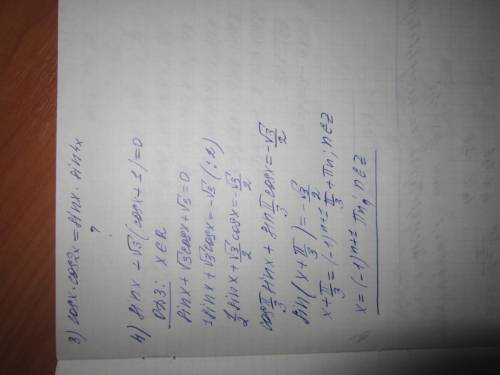 3) cosx · cos2x = sinx · sin4x
?
4) sinx + √3 (cosx + 1) = 0
ОДЗ: x ∈ R
sinx + √3 cosx + √3 = 0
1 sinx + √3 cosx = -√3 (:2)
1/2 sinx + √3/2 cosx = -√3/2
cos π/3 sinx + sin π/3 cosx = -√3/2
sin(x + π/3) = -√3/2
x + π/3 = (-1)ⁿ⁺¹ π/3 + πn; n ∈ Z
x = (-1)ⁿ⁺¹ πn; n ∈ Z